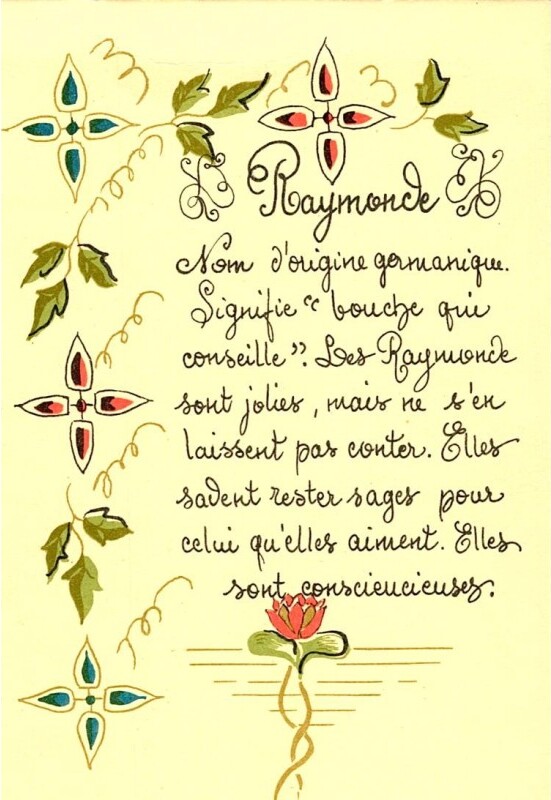 Raymonde
Nom d'origine germanique.
Signifie "bouche qui
conseille". Les Raymonde
sont jolies, mais ne s'en
laissent pas conter. Elles
sadent rester sages pour
celui qu'elles aiment. Elles
sont conscieucieuses.